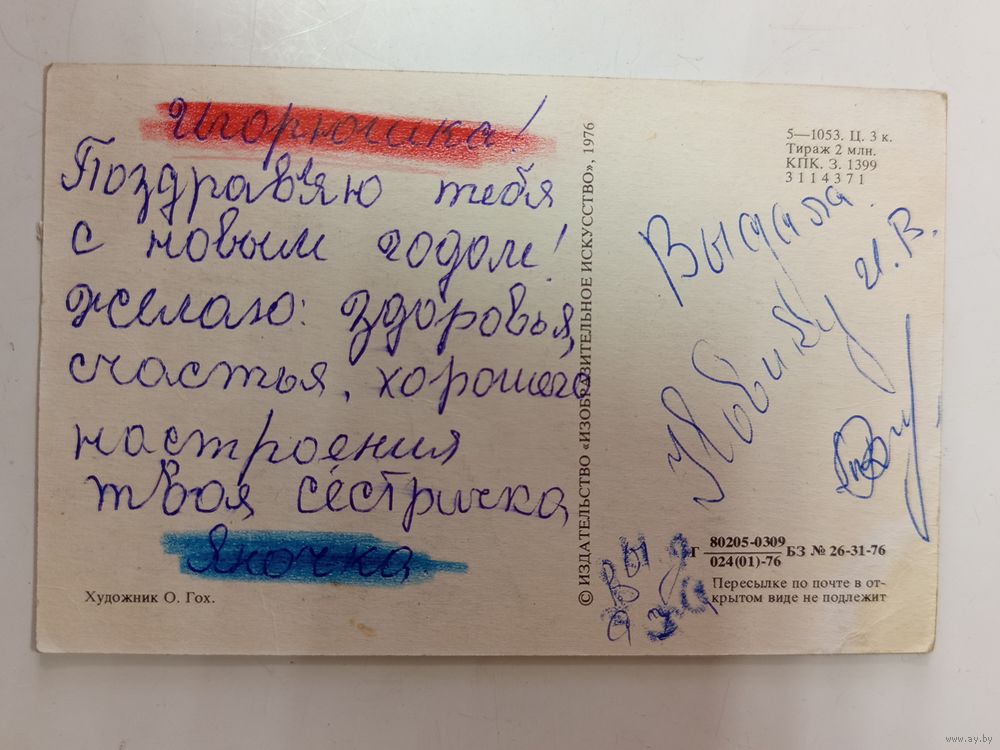 Игорюшка!
Поздравляю тебя
с новым годом!
Желаю: здоровья,
счастья, хорошего
настроения
твоя сестричка
Яночка
Художник О. Гох.
© ИЗДАТЕЛЬСТВО «ИЗОБРАЗИТЕЛЬНОЕ ИСКУССТВО», 1976
5—1053. Ц. 3 к.
Тираж 2 млн.
КПК. З. 1399
3114371
Выдала
И.В.
Г 80205-0309
024(01)-76 БЗ № 26-31-76
Пересылке по почте в от-
крытом виде не подлежит
www.ay.by